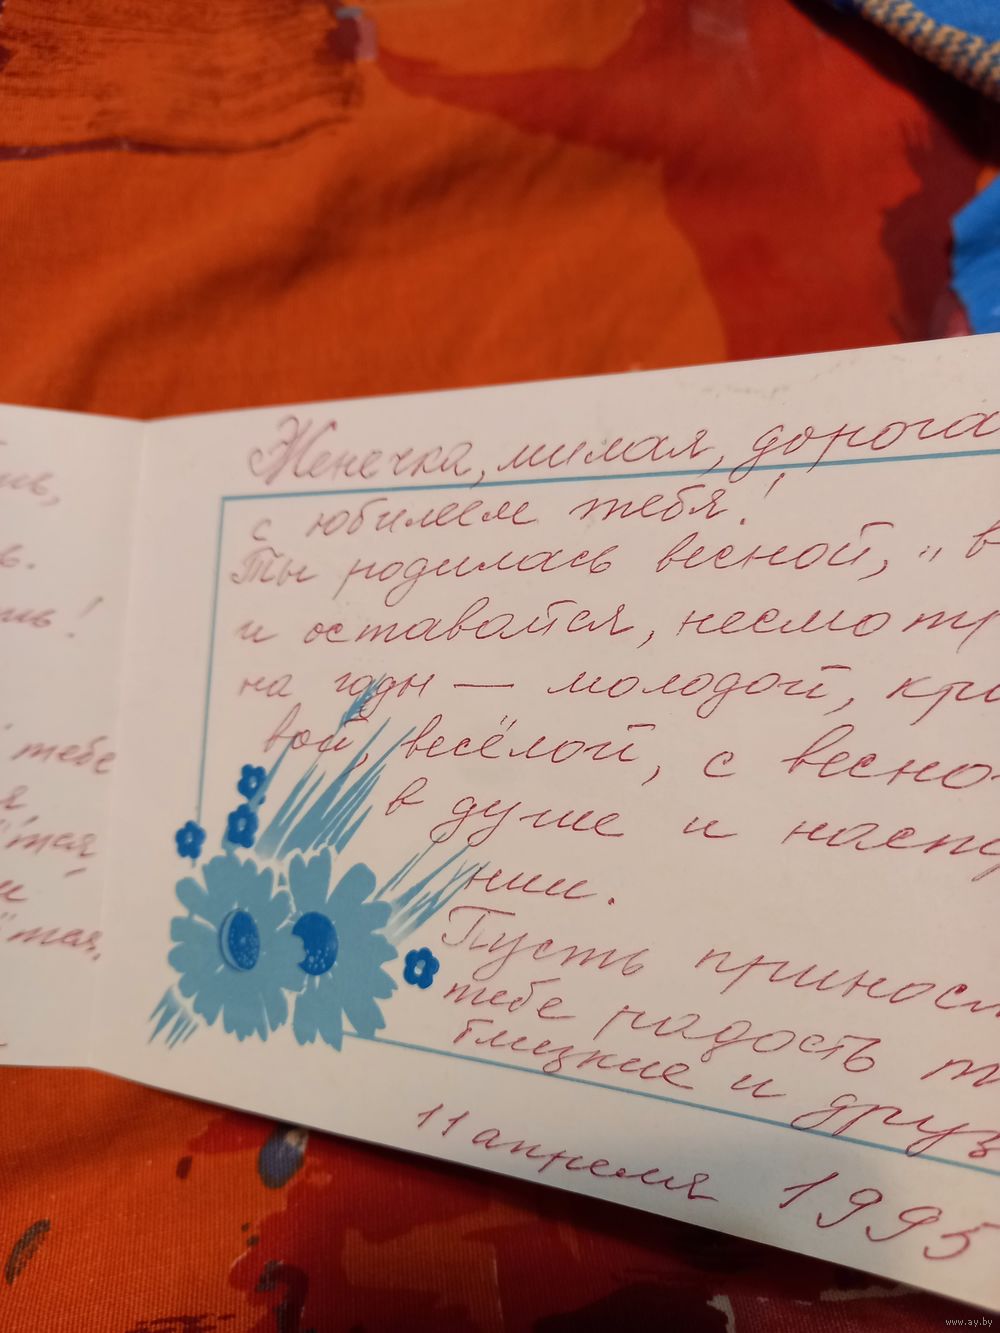 ть!
тебе
я
ётся
и
ётся.
Женечка, милая, дорога
с юбилеем тебя!
Ты родилась весной, „в
и оставайся, несмотр
на годы — молодой, кра
вой, весёлой, с весно-
в душе и настр
нии.
Пусть принося
тебе радость т
близкие и друз
11 апреля 1995
www.ay.by